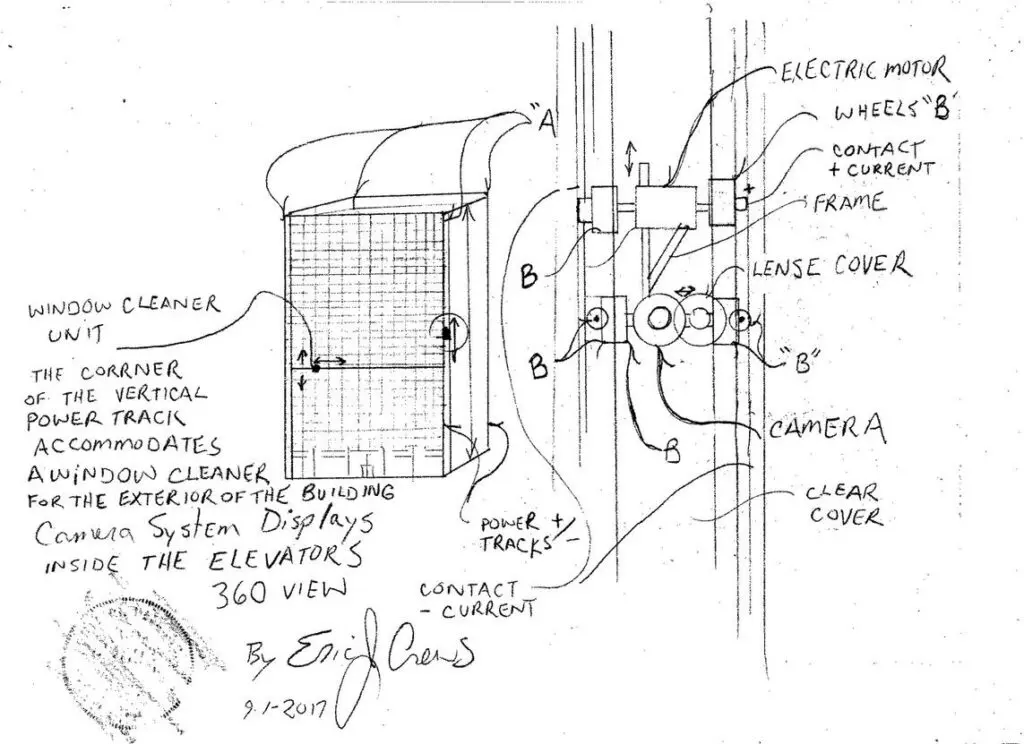 "A
ELECTRIC MOTOR
WHEELS "B"
CONTACT
+ CURRENT
+
FRAME
B
LENSE COVER
WINDOW CLEANER
UNIT
B
"B"
THE CORRNER
OF THE VERTICAL
POWER TRACK
ACCOMMODATES
A WINDOW CLEANER
FOR THE EXTERIOR OF THE BUILDING
CAMERA
B
CLEAR
COVER
POWER +
TRACKS -
Camera System Displays
INSIDE THE ELEVATORS
360 VIEW
CONTACT
- CURRENT
By Eric J Crews
9-1-2017